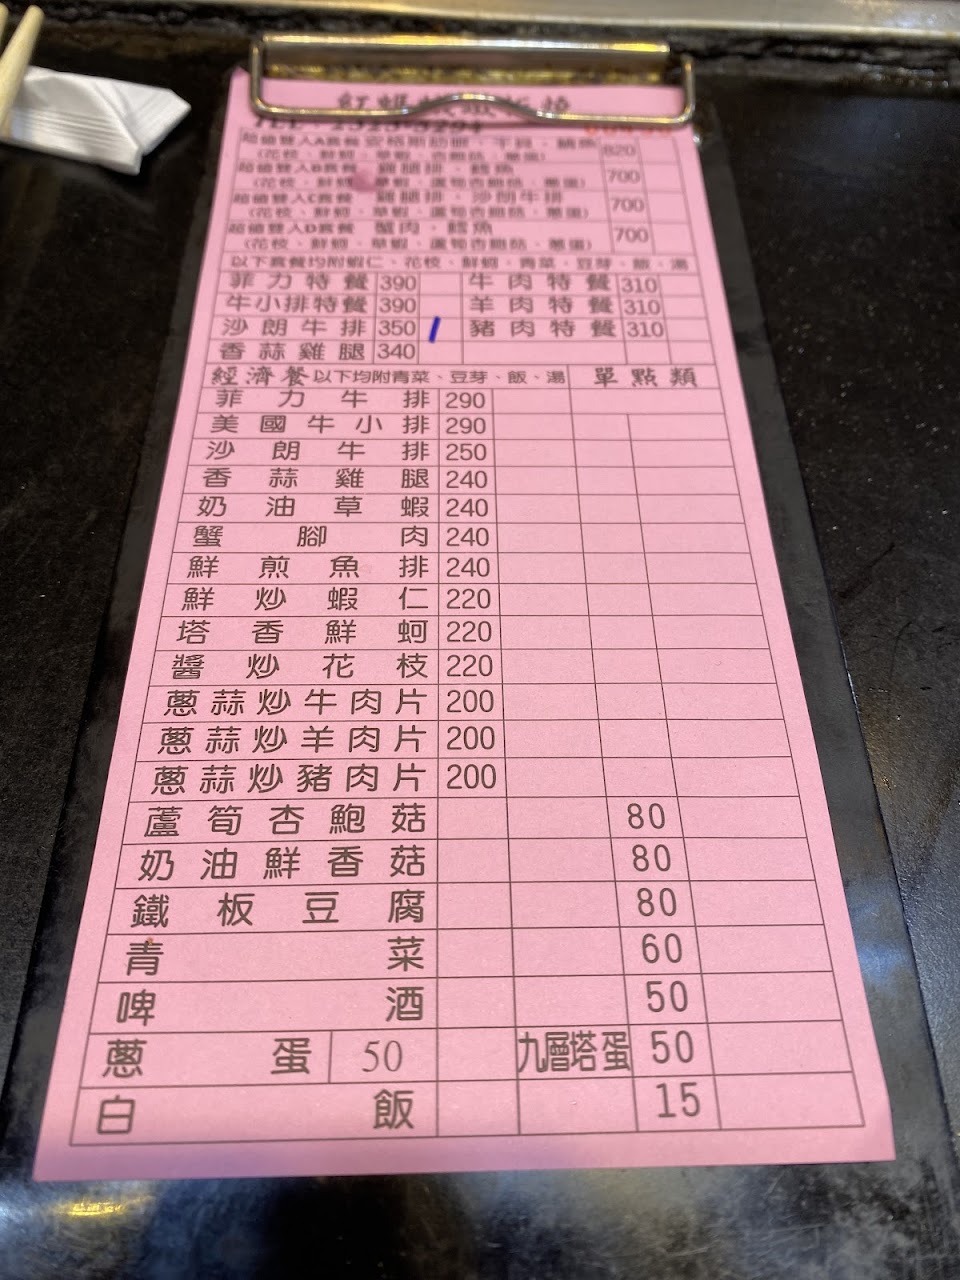 TEL 2523-3294
超值雙人A套餐 安格斯肋眼、干貝、鯛魚 820
(花枝、鮮蚵、草蝦、杏鮑菇、蔥蛋)
超值雙人B套餐 雞腿排、鱈魚 700
(花枝、鮮蚵、草蝦、蘆筍杏鮑菇、蔥蛋)
超值雙人C套餐 雞腿排、沙朗牛排 700
(花枝、鮮蚵、草蝦、蘆筍杏鮑菇、蔥蛋)
超值雙人D套餐 蟹肉、鱈魚 700
(花枝、鮮蚵、草蝦、蘆筍杏鮑菇、蔥蛋)
以下套餐均附蝦仁、花枝、鮮蚵、青菜、豆芽、飯、湯
菲力特餐 390 牛肉特餐 310
牛小排特餐 390 羊肉特餐 310
沙朗牛排 350 / 豬肉特餐 310
香蒜雞腿 340
經濟餐 以下均附青菜、豆芽、飯、湯 單點類
菲力牛排 290
美國牛小排 290
沙朗牛排 250
香蒜雞腿 240
奶油草蝦 240
蟹腳肉 240
鮮煎魚排 240
鮮炒蝦仁 220
塔香鮮蚵 220
醬炒花枝 220
蔥蒜炒牛肉片 200
蔥蒜炒羊肉片 200
蔥蒜炒豬肉片 200
蘆筍杏鮑菇 80
奶油鮮香菇 80
鐵板豆腐 80
青菜 60
啤酒 50
蔥蛋 50 九層塔蛋 50
白飯 15